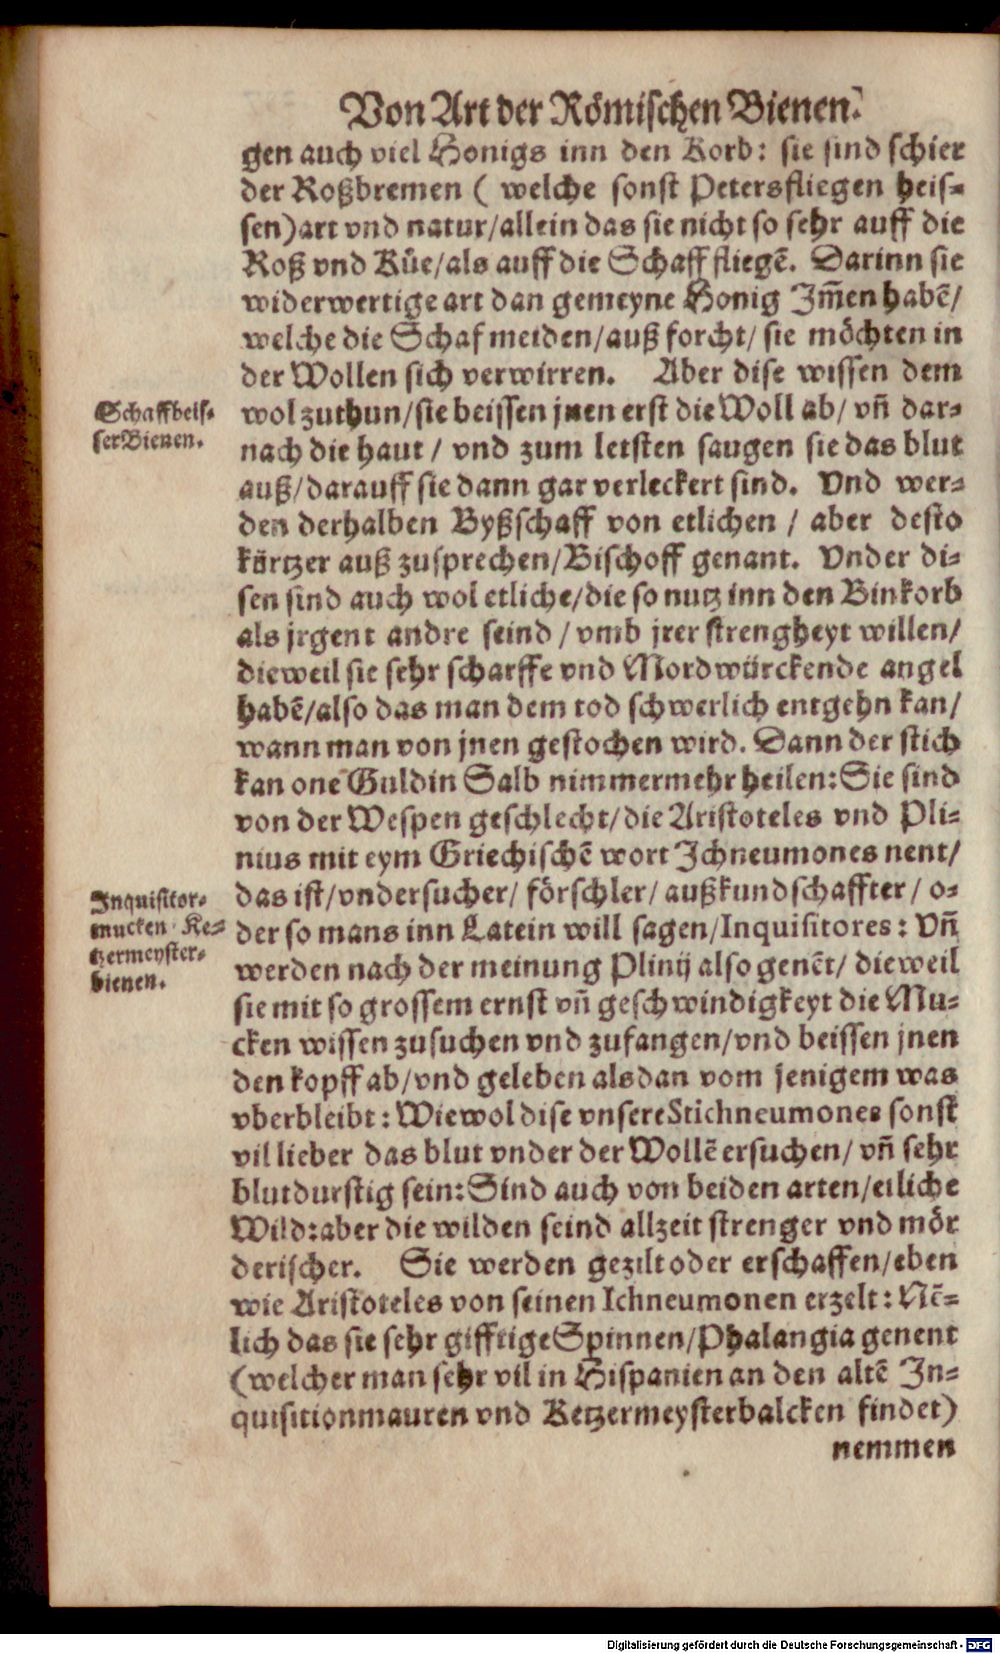 Von Art der Römischen Bienen.
gen auch viel Honigs inn den Korb: sie sind schier
der Roßbremen ( welche sonst Petersfliegen heis-
sen) art vnd natur/allein das sie nicht so sehr auff die
Roß vnd Küe/als auff die Schaff fliegē. Darinn sie
widerwertige art dan gemeyne Honig Im̄en habē/
welche die Schaf meiden/auß forcht/ sie möchten in
der Wollen sich verwirren. Aber dise wissen dem
Schaffbeis-
ser Bienen.
wol zuthun/sie beissen jnen erst die Woll ab/ vn̄ dar-
nach die haut / vnd zum letsten saugen sie das blut
auß/darauff sie dann gar verleckert sind. Vnd wer-
den derhalben Byßschaff von etlichen / aber desto
kürtzer auß zusprechen/Bischoff genant. Vnder di-
sen sind auch wol etliche/die so nutz inn den Binkorb
als jrgent andre seind / vmb jrer strengheyt willen/
dieweil sie sehr scharffe vnd Mordwürckende angel
habē/also das man dem tod schwerlich entgehn kan/
wann man von jnen gestochen wird. Dann der stich
kan one Guldin Salb nimmermehr heilen: Sie sind
von der Wespen geschlecht/die Aristoteles vnd Pli-
nius mit eym Griechischē wort Ichneumones nent/
Inquisitor-
mucken Ke-
tzermeyster-
bienen.
das ist/vndersucher/ förschler/ außkundschaffter / o-
der so mans inn Latein will sagen/Inquisitores: Vn̄
werden nach der meinung Plinij also genēt/ dieweil
sie mit so grossem ernst vn̄ geschwindigkeyt die Mu-
cken wissen zusuchen vnd zufangen/vnd beissen jnen
den kopff ab/vnd geleben alsdan vom jenigem was
vberbleibt: Wiewol dise vnsere Stichneumones sonst
vil lieber das blut vnder der Wollē ersuchen/ vn̄ sehr
blutdurstig sein: Sind auch von beiden arten/etliche
Wild: aber die wilden seind allzeit strenger vnd mör
derischer. Sie werden gezilt oder erschaffen/eben
wie Aristoteles von seinen Ichneumonen erzelt: Nē-
lich das sie sehr gifftige Spinnen/Phalangia genent
(welcher man sehr vil in Hispanien an den altē In-
quisitionmauren vnd Ketzermeysterbalcken findet)
nemmen
Digitalisierung gefördert durch die Deutsche Forschungsgemeinschaft - DFG